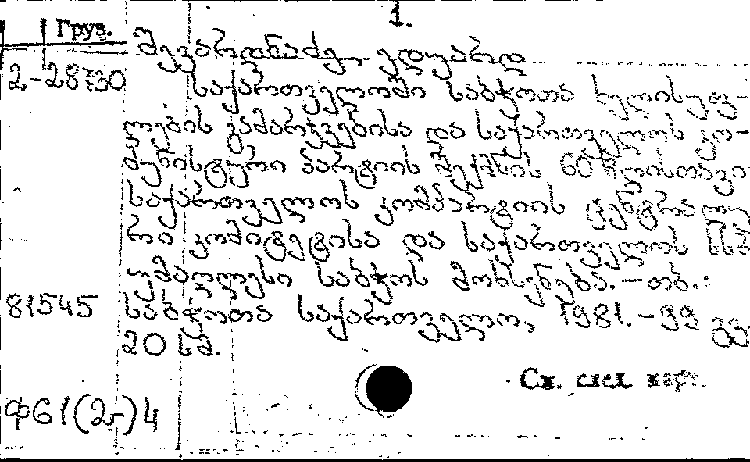 1.
Груз.
შევარდნაძე, ედუარდ
2-28730
საქართველოში საბჭოთა ხელისუფ-
ლების გამარჯვებისა და საქართველოს კო-
მუნისტური პარტიის შექმნის 60 წლისთავი
საქართველოს კომპარტიის ცენტრალუ
რი კომიტეტისა და საქართველოს სსრ
უმაღლესი საბჭოს მოხსენება.-თბ.:
81545 საბჭოთა საქართველო, 1981.-39 გვ
20 სმ.
См. след. карт.
Ф61(2г)4